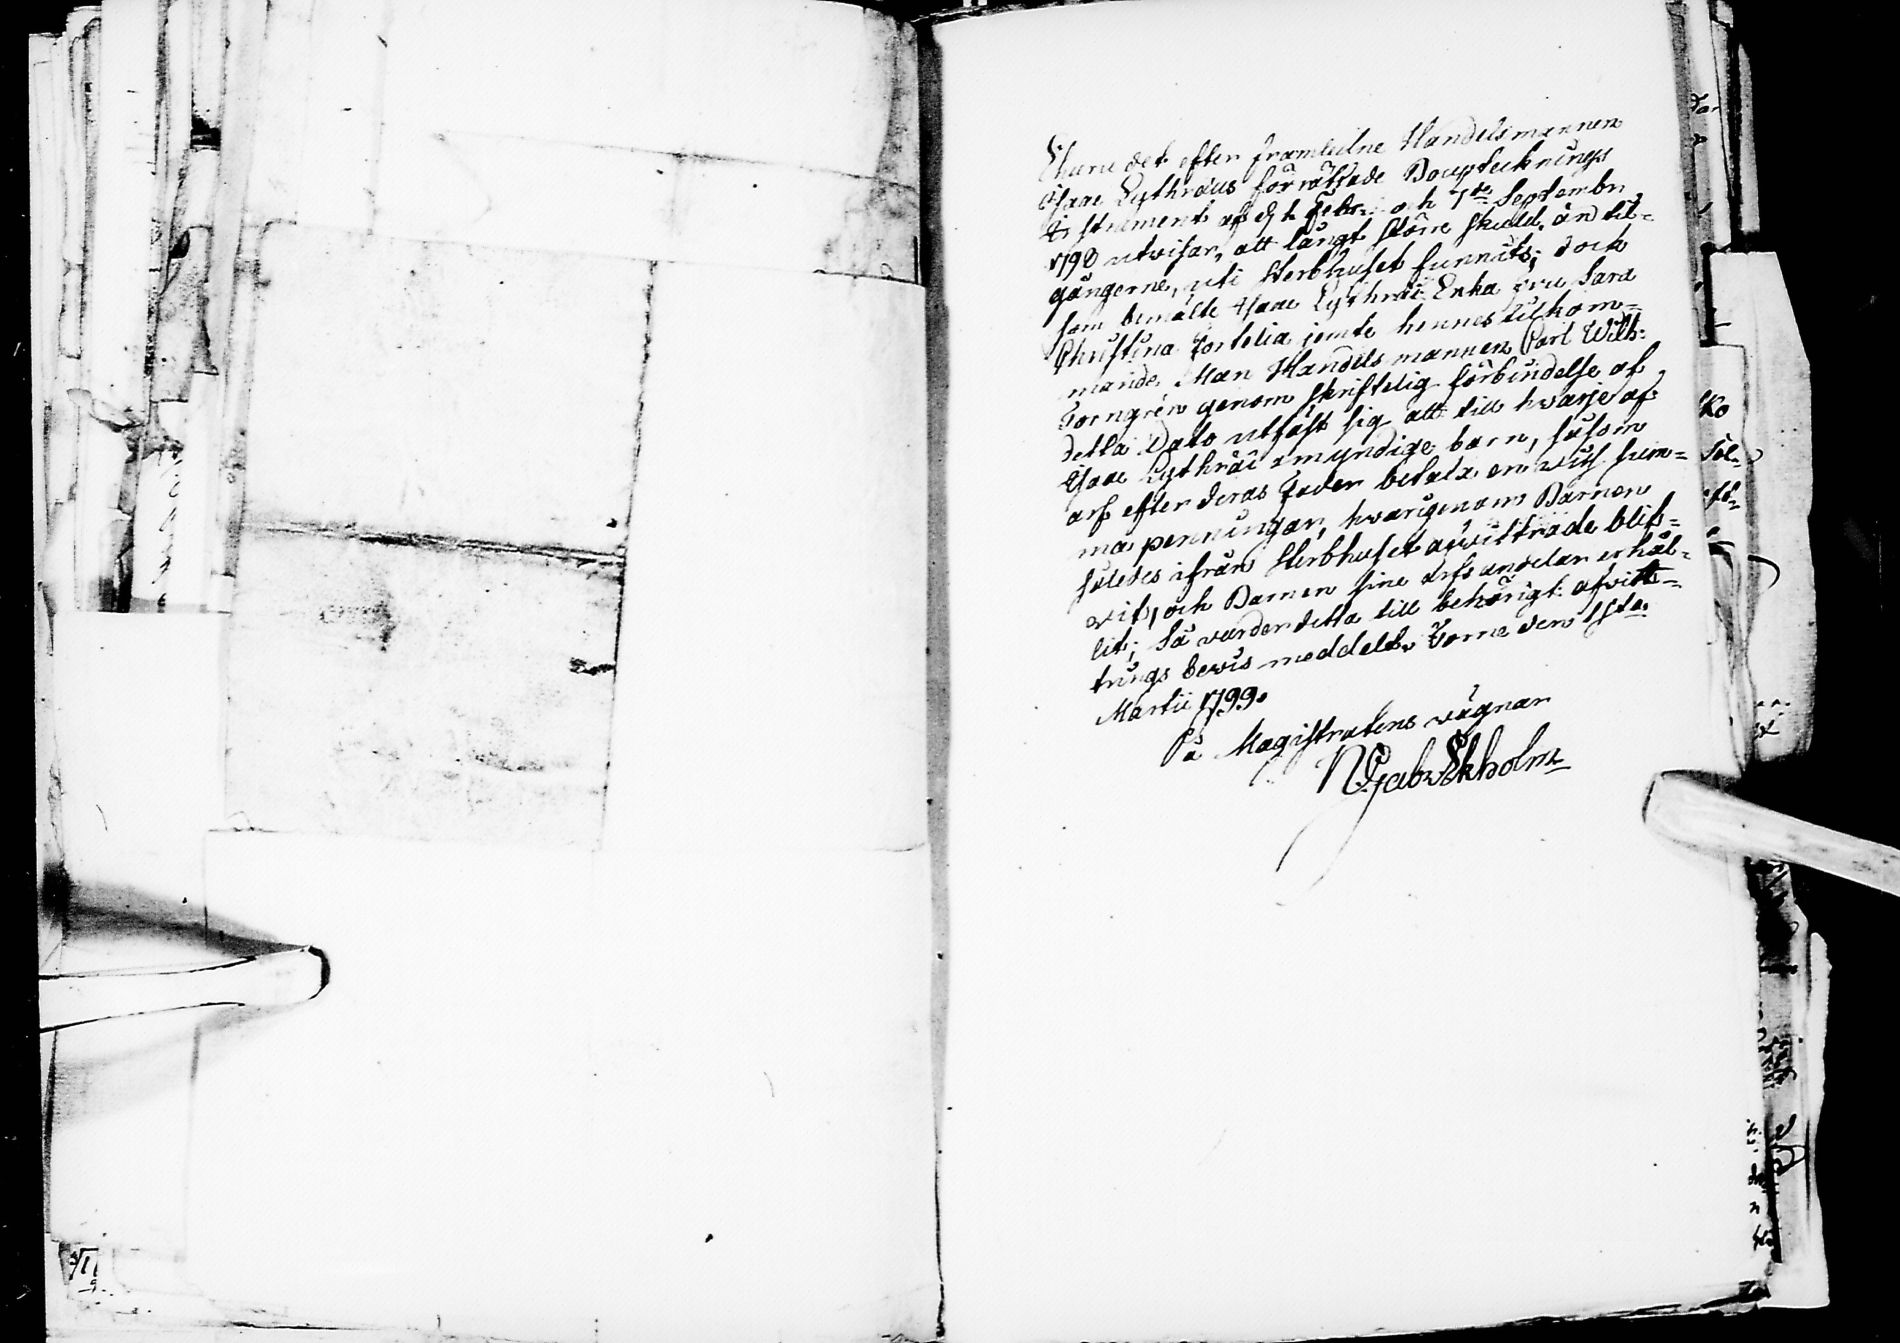 Ehuru det efter framledne Handelsmannen
Isaac Lythræus förrättade Bouptecknings
Instrument af d. Febr. och 7de Septembr
1798 utwisar, att långt större skuld, än til-
gångerne, uti Sterbhuset funnits; dock
som bemälte Isaac Lythræi Enka Fru Sara
Christina Fortelia jemte hennes tilkom-
mande Man Handelsmannen Carl Wilh:
Torngrén genom skriftelig förbindelse af
detta Dato utfäst sig att till hwarje af
Isaac Lythræi omyndige barn, såsom
arf efter deras Fader betala en wiss sum-
ma penningar, hwarigenom Barnen
således ifrån Sterbhuset afwittrade blif-
wit, och Barnen sine arfsandelar erhål-
lit; Så warder detta till behörigt afwitt-
rings bewis meddelt. Torne den 1sta
Martii 1799.
På Magistratens wägnar
Gab. Ekholm
Ko